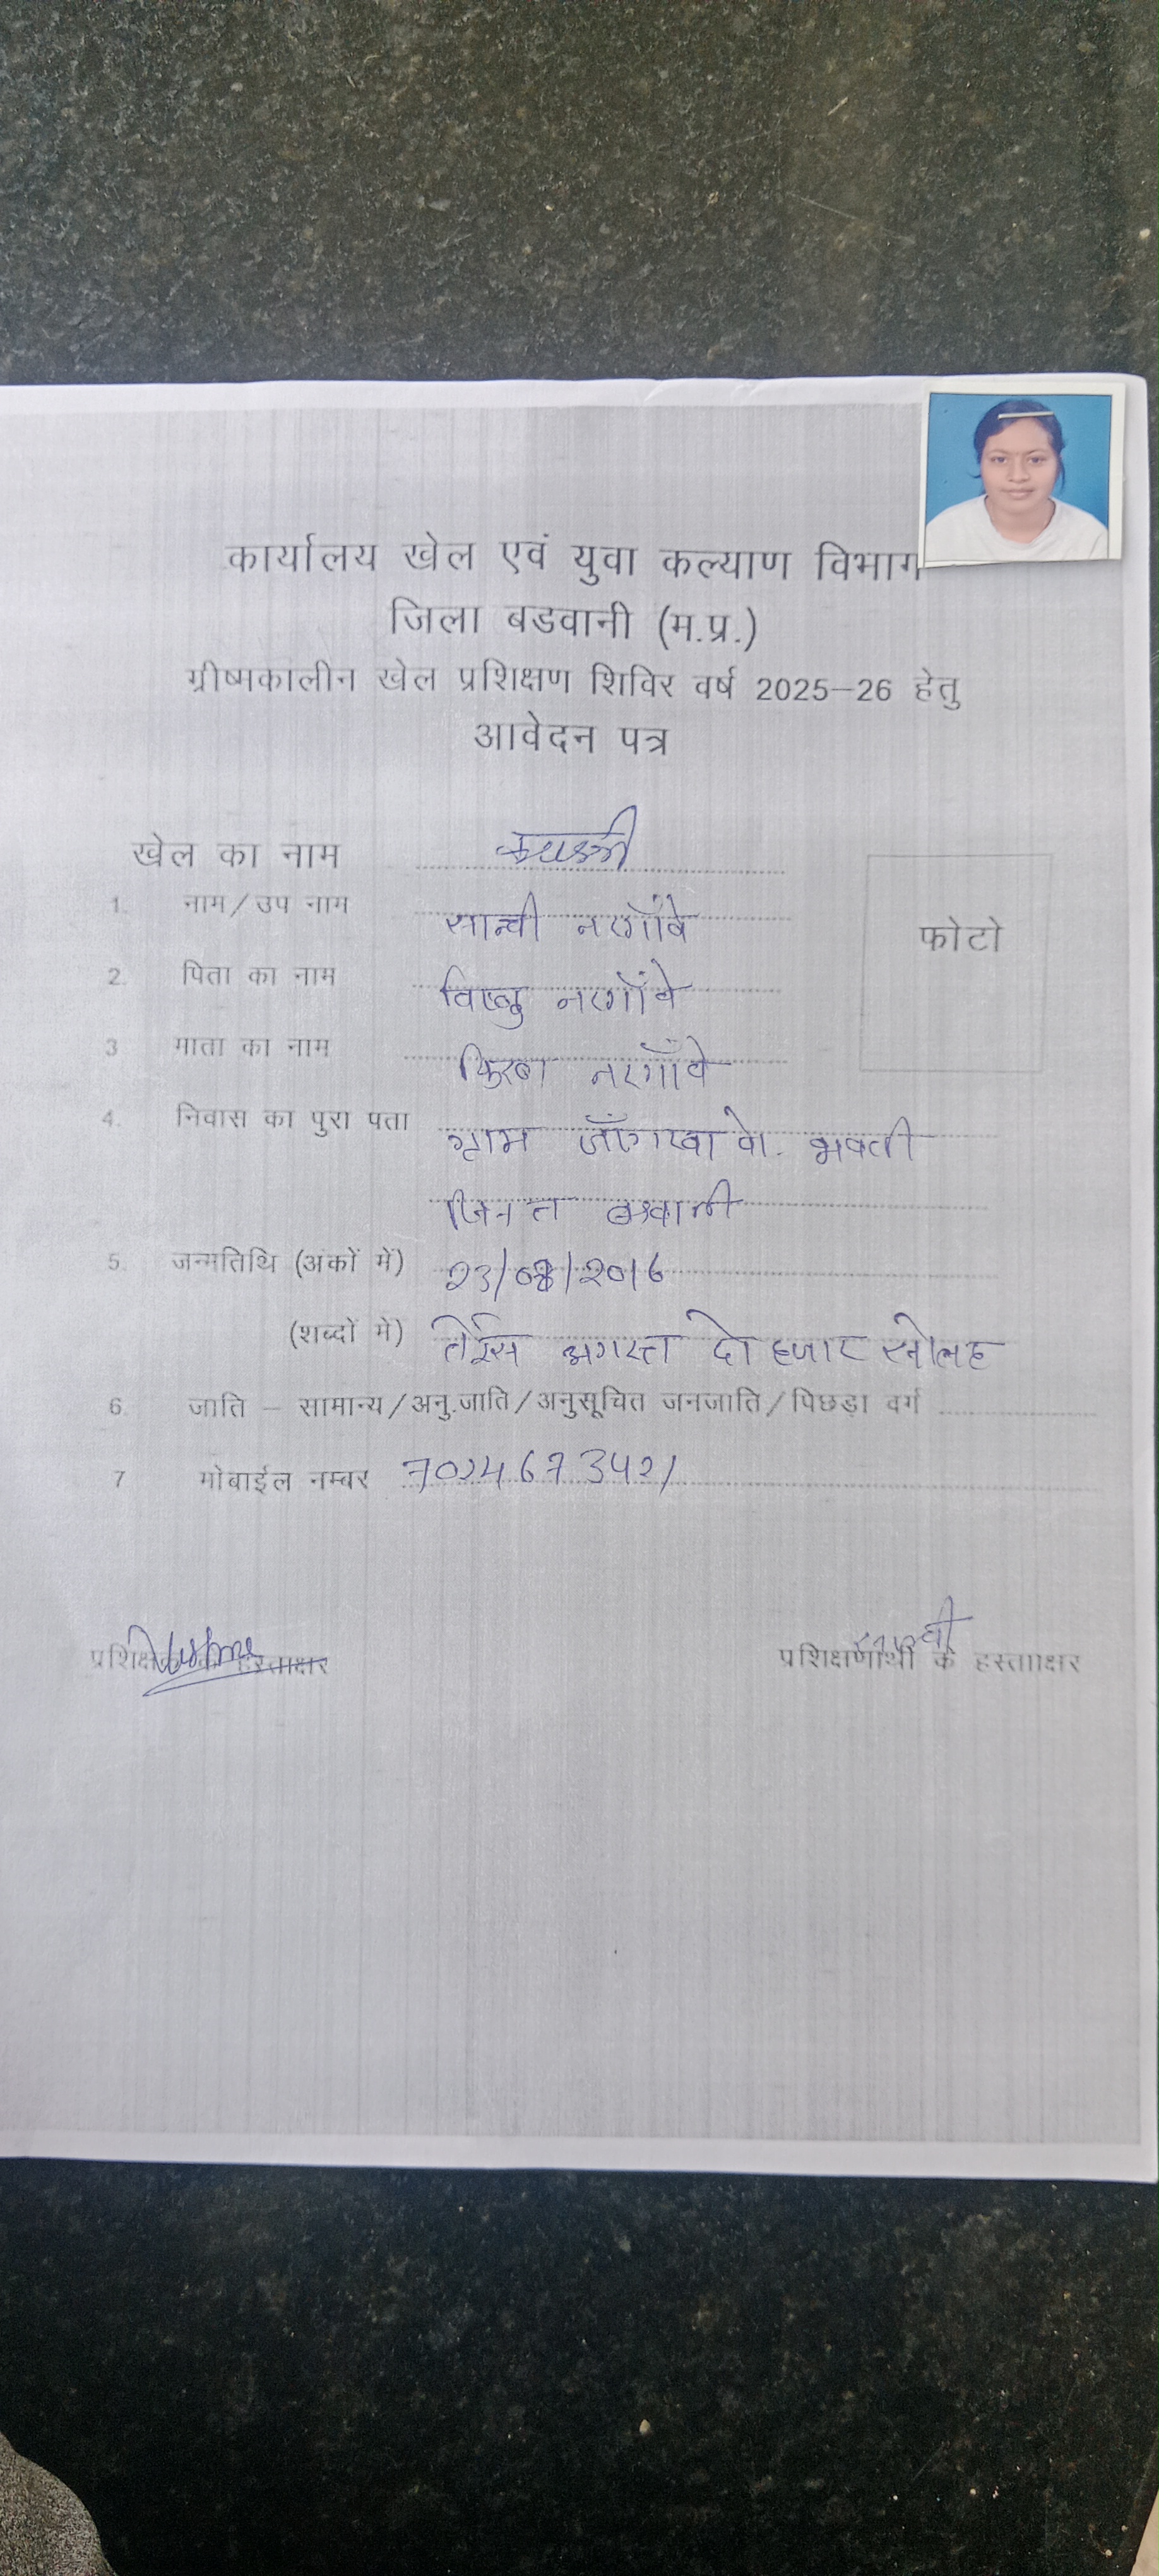 कार्यालय खेल एवं युवा कल्याण विभाग
जिला बडवानी (म.प्र.)
ग्रीष्मकालीन खेल प्रशिक्षण शिविर वर्ष 2025–26 हेतु
आवेदन पत्र
खेल का नाम
फोटो
1. नाम/उप नाम सान्ची नरगाँवे
2. पिता का नाम विष्णु नरगाँवे
3 माता का नाम किरण नरगाँवे
4. निवास का पुरा पता ग्राम
जिला बडवानी
5. जन्मतिथि (अंकों में) 23/08/2016
(शब्दों में) तेईस अगस्त दो हजार सोलह
6. जाति – सामान्य/अनु.जाति/अनुसूचित जनजाति/पिछड़ा वर्ग
7 मोबाईल नम्बर 7024673421
हस्ताक्षर प्रशिक्षणार्थी के हस्ताक्षर